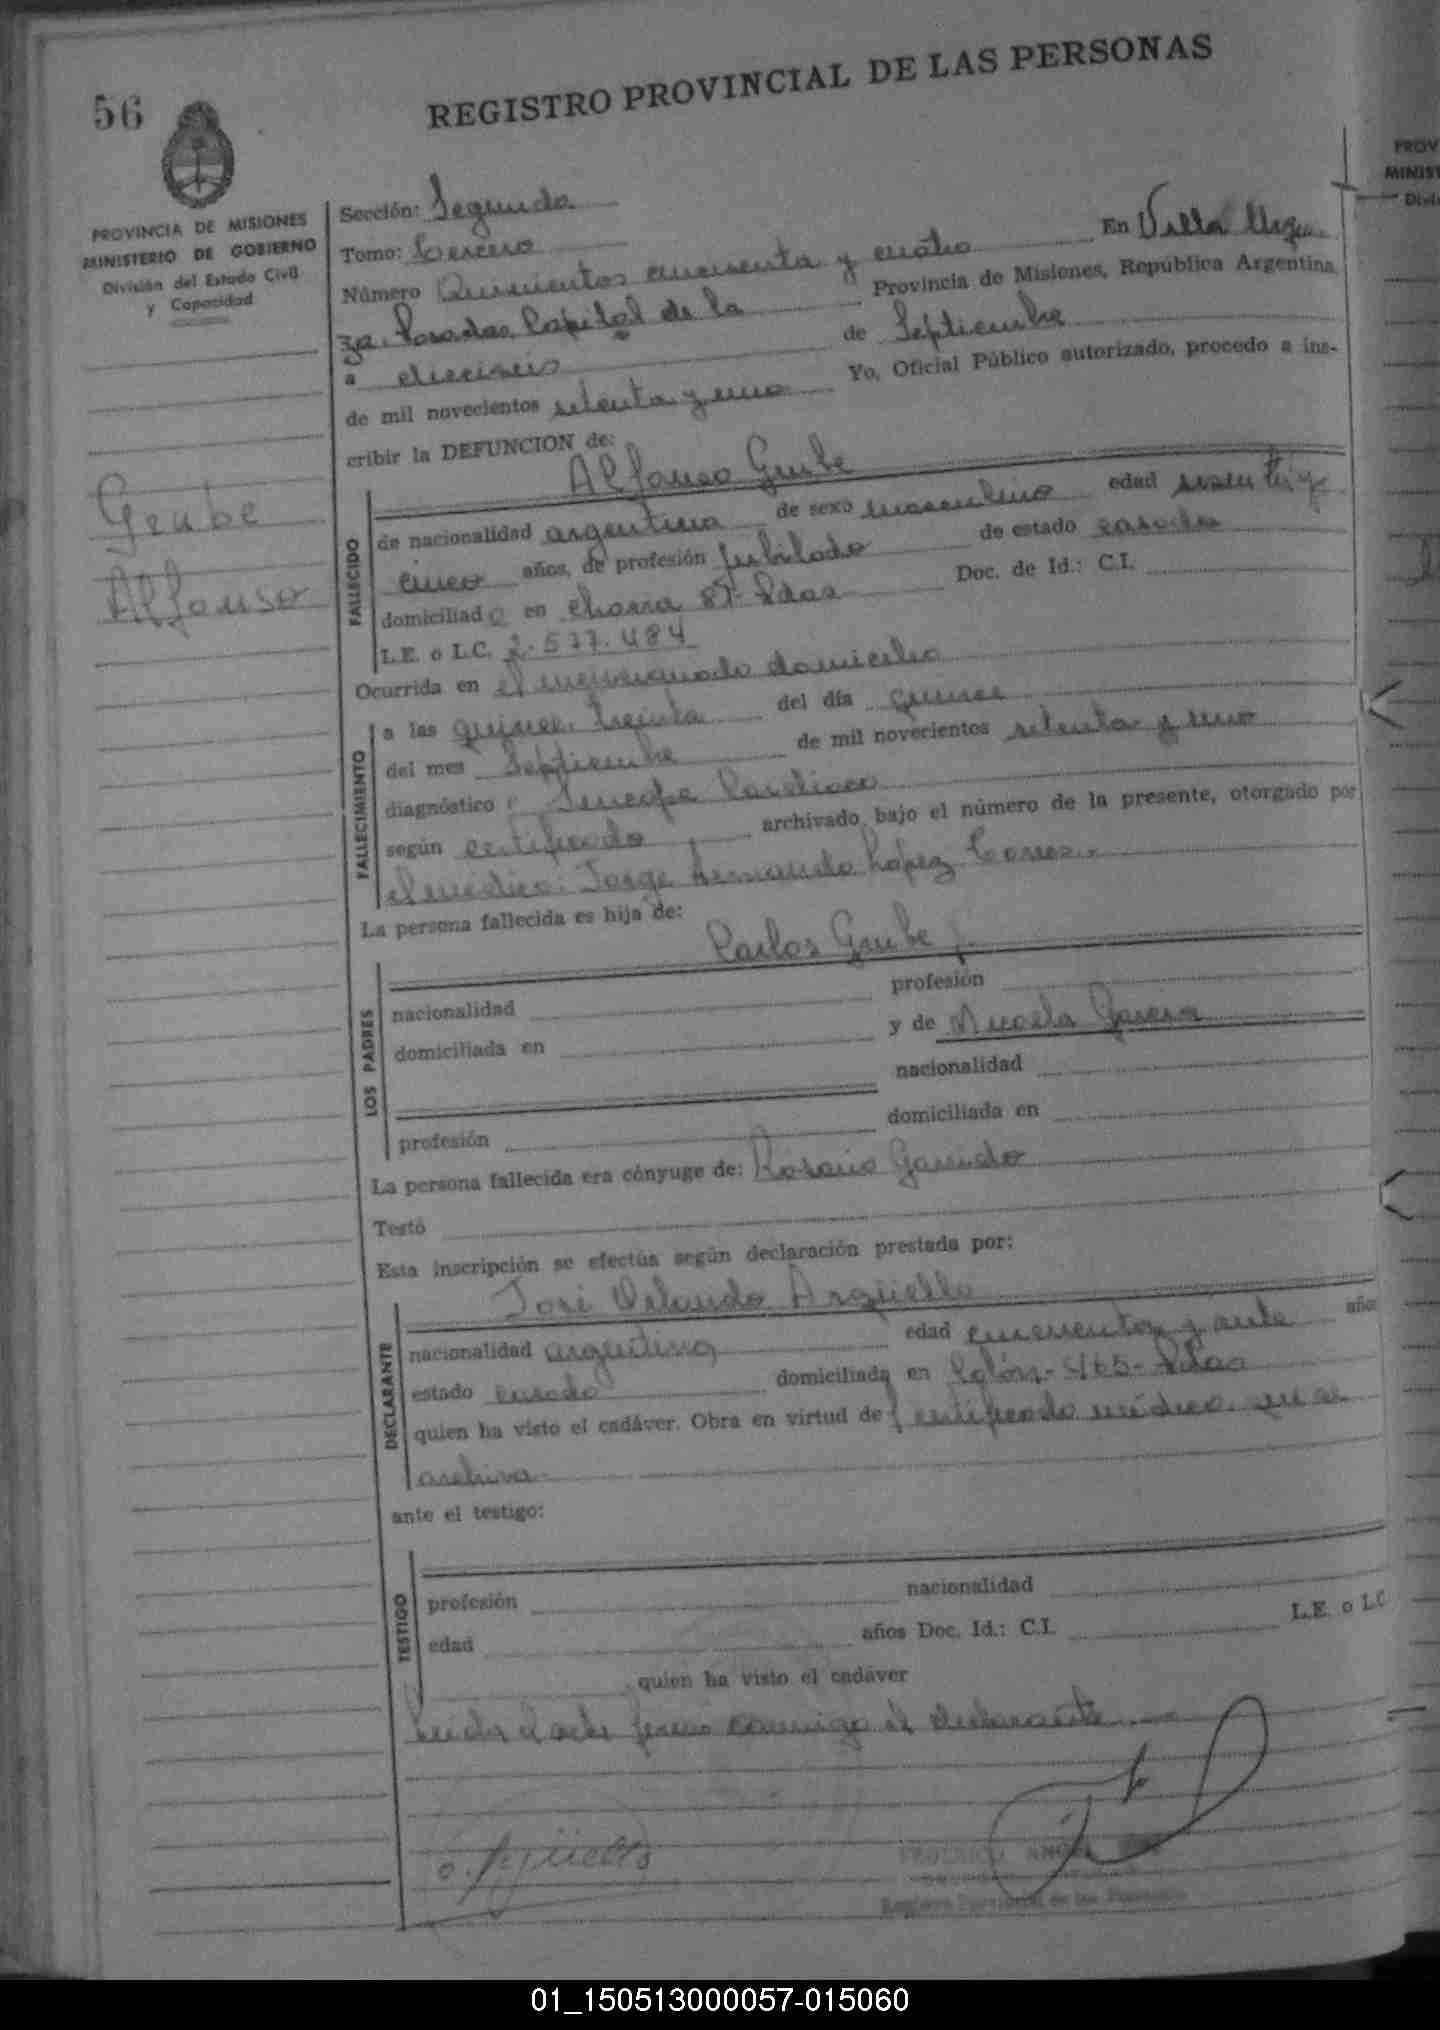 56
REGISTRO PROVINCIAL DE LAS PERSONAS
PROVINCIA DE MISIONES
MINISTERIO DE GOBIERNO
División del Estado Civil
y Capacidad
Grube
Alfonso
Sección: Segunda
Tomo: tercero
Número Quinientos cincuenta y cuatro En Villa Urqui
za. Posadas Capital de la Provincia de Misiones, República Argentina
a dieciseis de Septiembre
de mil novecientos setenta y uno Yo, Oficial Público autorizado, procedo a ins-
cribir la DEFUNCION de:
Alfonso Grube
FALLECIDO
de nacionalidad argentina de sexo masculino edad sesenta y
cinco años, de profesión Jubilado de estado casado
domiciliado en 87 Pdas Doc. de Id.: C.I.
L.E. o L.C. 2.577.484
Ocurrida en el mencionado domicilio
FALLECIMIENTO
a las quince treinta del día quince
del mes Septiembre de mil novecientos setenta y uno
diagnóstico Sincope Cardiaco
según certificado archivado bajo el número de la presente, otorgado por
el médico: Jorge Hernando López Torres.
La persona fallecida es hija de:
Carlos Grube
LOS PADRES
nacionalidad profesión
domiciliada en y de Micaela
nacionalidad
profesión domiciliada en
La persona fallecida era cónyuge de: Rosario Garrido
Testó
Esta inscripción se efectúa según declaración prestada por:
José Orlando Argüello
DECLARANTE
nacionalidad argentina edad cincuenta y siete años
estado casado domiciliada en Colón-465-Pdas
quien ha visto el cadáver. Obra en virtud de certificado médico que se
archiva
ante el testigo:
TESTIGO
profesión nacionalidad
edad años Doc. Id.: C.I. L.E. o L.C
quien ha visto el cadáver
Leida el acta firma conmigo el declarante
O. Argüello
FEDERICO
Registro Provincial de las Personas
PROV
MINIST
Divi
01_150513000057-015060